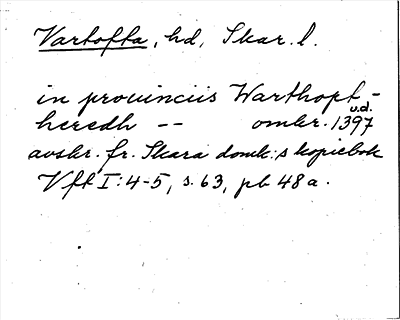 Vartofta, hd, Skar. l.
in prouinciis Warthopt-
heredh -- omkr. 1397 u.d.
avskr. fr. Skara domk:s kopiebok
Vft I:4-5, s. 63, pb 48a.